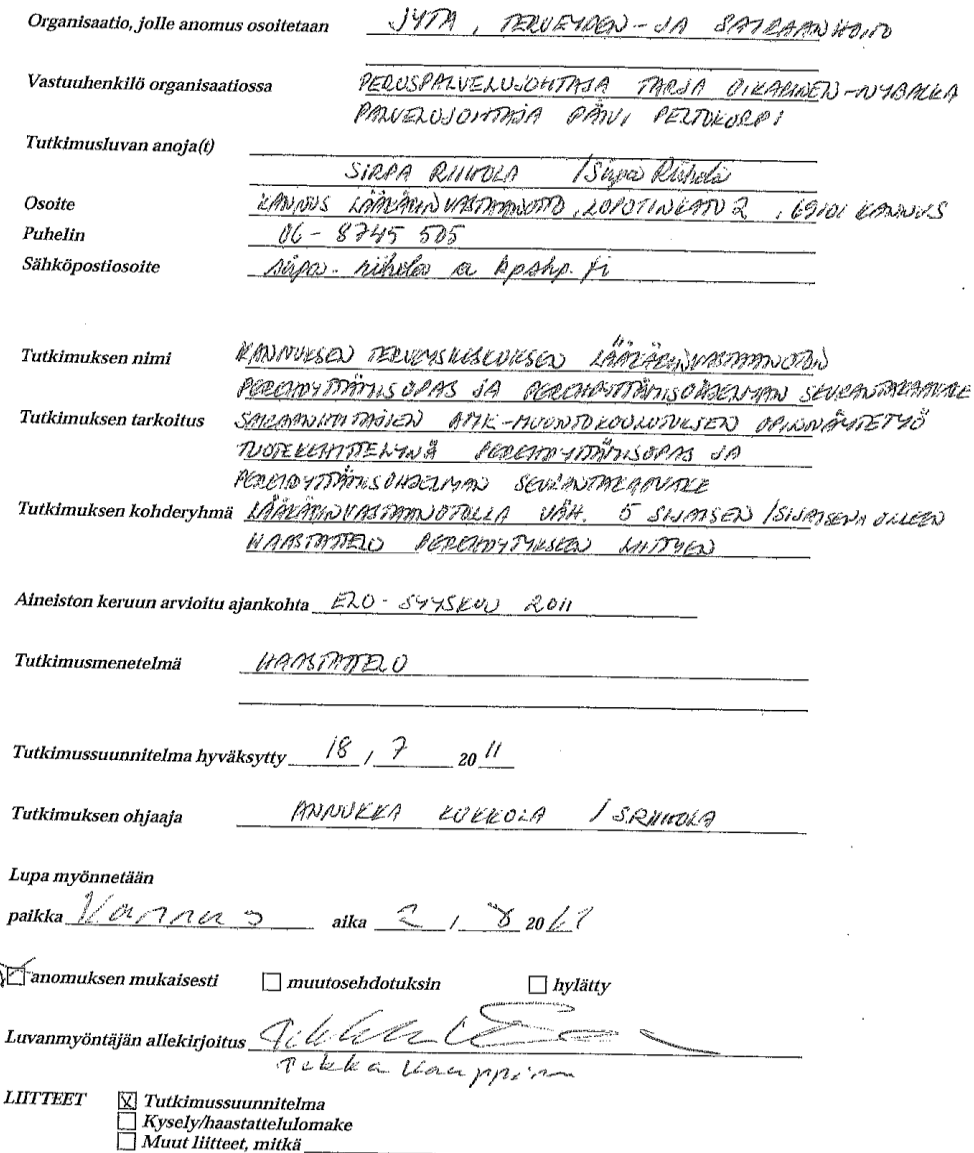 Organisaatio, jolle anomus osoitetaan JYTA, TERVEYDEN- JA SAIRAANHOITO
Vastuuhenkilö organisaatiossa PERUSPALVELUJOHTAJA TARJA OIKARINEN-NYBACKA
PALVELUJOHTAJA PÄIVI PELTOKORPI
Tutkimusluvan anoja(t)
SIRPA RIIHOLA / Sirpa Riihola
Osoite KANNUS LÄÄKÄRINVASTAANOTTO, LOPOTINKATU 2, 69101 KANNUS
Puhelin 06-8745 505
Sähköpostiosoite
Tutkimuksen nimi KANNUKSEN TERVEYSKESKUKSEN LÄÄKÄRINVASTAANOTON
PEREHDYTTÄMISOPAS JA PEREHDYTTÄMISOHJELMAN SEURANTAKAAVAKE
Tutkimuksen tarkoitus SAIRAANHOITAJIEN AMK-MUUNTOKOULUTUKSEN OPINNÄYTETYÖ
TUOTEKEHITTELYNÄ PEREHDYTTÄMISOPAS JA
PEREHDYTTÄMISOHJELMAN SEURANTAKAAVAKE
Tutkimuksen kohderyhmä LÄÄKÄRINVASTAANOTOLLA VÄH. 5 SIJAISEN / SIJAISENA OLLEEN
HAASTATTELU PEREHDYTYKSEEN LIITTYEN
Aineiston keruun arvioitu ajankohta ELO - SYYSKUU 2011
Tutkimusmenetelmä HAASTATTELU
Tutkimussuunnitelma hyväksytty 18 / 7 20 11
Tutkimuksen ohjaaja ANNUKKA KUKKOLA / S.RIIHOLA
Lupa myönnetään
paikka Kannus aika 2 / 8 20 11
anomuksen mukaisesti muutosehdotuksin hylätty
Luvanmyöntäjän allekirjoitus
LIITTEET Tutkimussuunnitelma
Kysely/haastattelulomake
Muut liitteet, mitkä